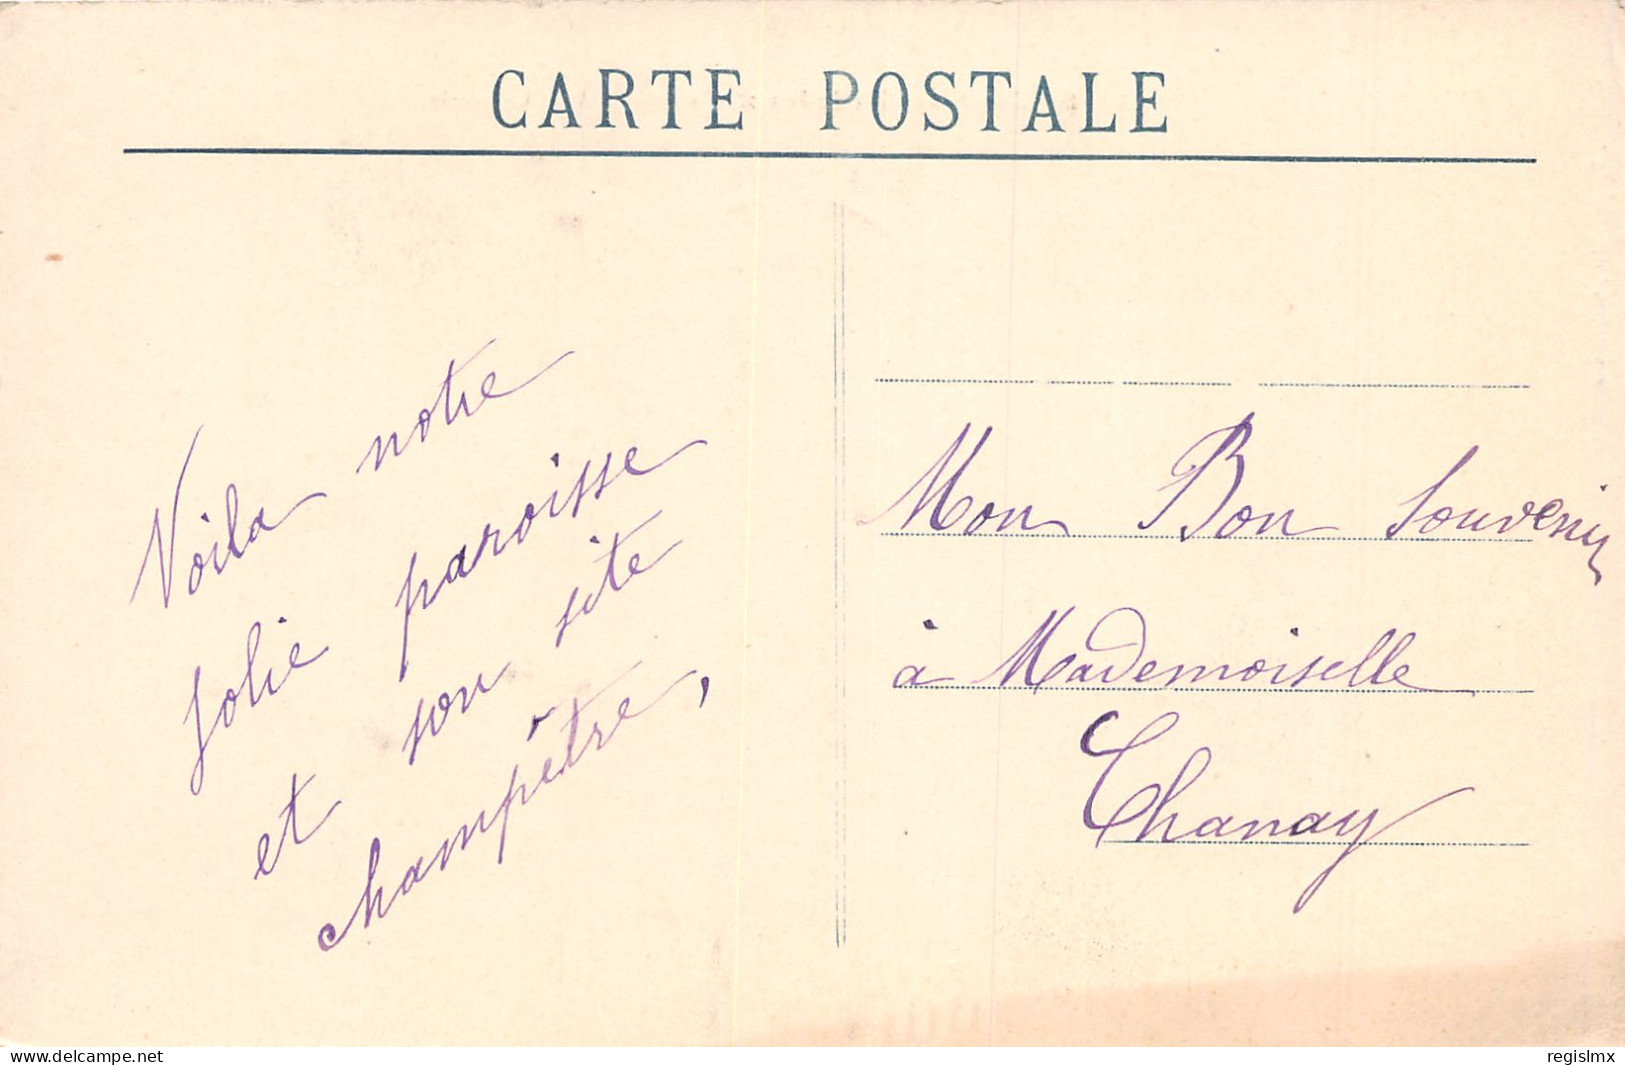 CARTE POSTALE
Voila notre
jolie paroisse
et son site
champêtre,
Mon Bon Souvenir
à Mademoiselle
Thanay
www.delcampe.net
regislmx